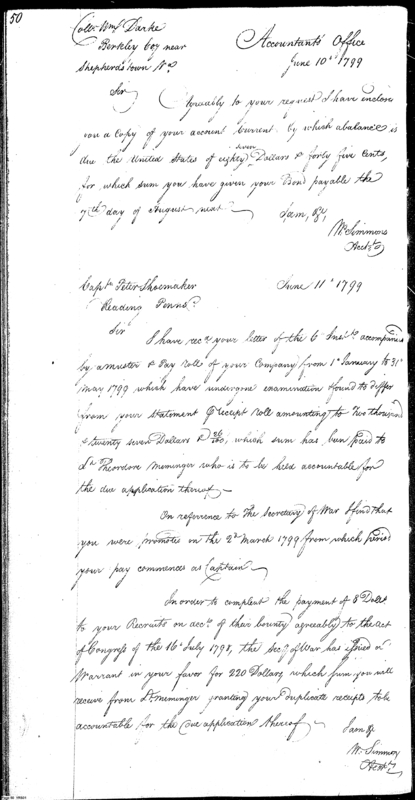 50
Coll: Wm. Darke
Berkley Coy near
Shepherdstown Va
Accountants Office
June 10th 1799
Sir
Agreeably to your request I have enclose
you a Copy of your account Current by which a balance is
due the United States of eighty seven Dollars & forty five Cents,
for which sum you have given your Bond payable the
7th day of August next.
I am, &c,
Wm Simmons
Acctt
Captn Peter Shoemaker
Reading Penns.
June 11th 1799
Sir
I have recd your letter of the 6 Inst accompanied
by a muster & Pay Roll of your Company from 1st January to 31st
May 1799 which have undergone examination & found to differ
from your statement & receipt Roll amounting to Two thousand
& twenty seven Dollars & 26/100, which sum has been paid to
Lt Theodore Meminger who is to be held accountable for
the due application thereof
On referrence to the Secretary of War I find that
you were promoted on the 2d March 1799 from which period
your pay commences as Captain
In order to compleat the payment of 8 Dolls
to your Recruits on acct of their bounty agreeably to the Act
of Congress of the 16th July 1798, the Secy of War has issued a
Warrant in your favor for 220 Dollars which sum you will
receive from Lt Meminger granting your duplicate receipts to be
accountable for the due application thereof
I am &
Wm Simmons
Acctt